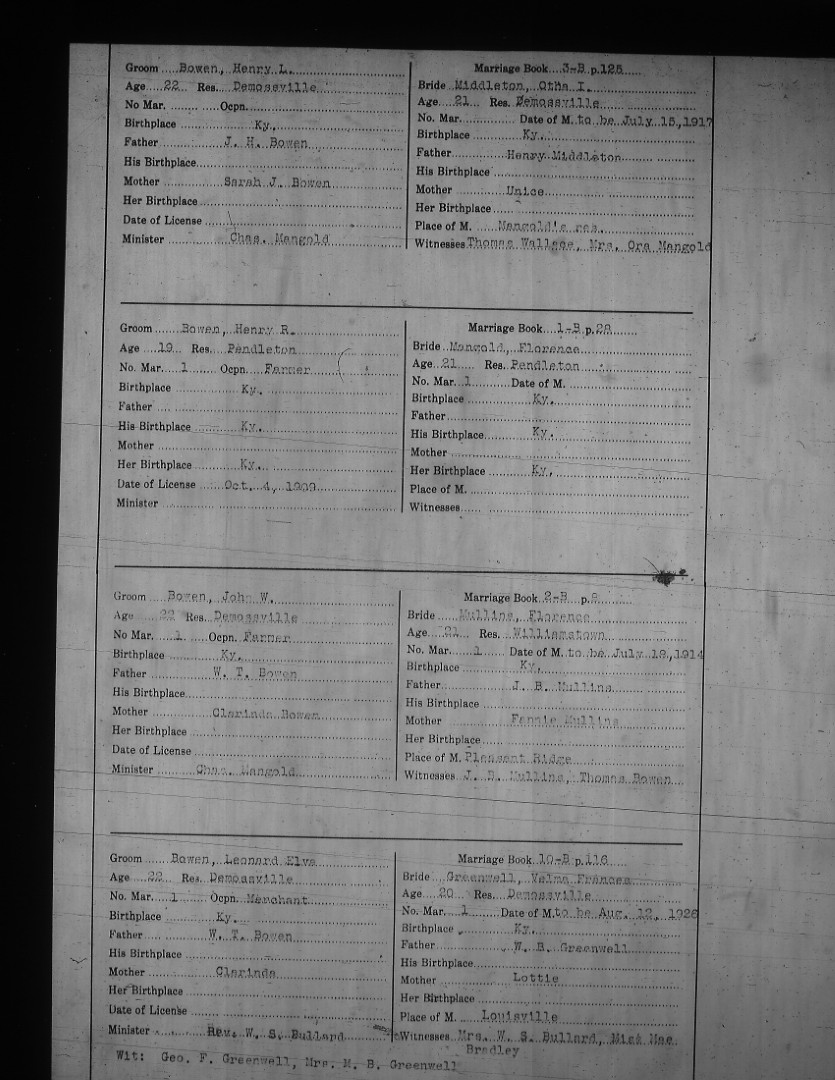 Groom Bowen, Henry L.
Age 22 Res. Demossville
No Mar. Ocpn.
Birthplace Ky.
Father J. H. Bowen
His Birthplace
Mother Sarah J. Bowen
Her Birthplace
Date of License
Minister Chas. Mangold
Marriage Book 3-B p. 125
Bride Middleton, Otha I.
Age 21 Res. Demossville
No. Mar. Date of M. to be July 15, 1917
Birthplace Ky.
Father Henry Middleton
His Birthplace
Mother Unice
Her Birthplace
Place of M. Mangold's res.
Witnesses Thomas Wallace, Mrs. Ora Mangold
Groom Bowen, Henry R.
Age 19 Res. Pendleton
No. Mar. 1 Ocpn. Farmer
Birthplace Ky.
Father
His Birthplace Ky.
Mother
Her Birthplace Ky.
Date of License Oct. 4, 1909
Minister
Marriage Book 1-B p. 28
Bride Mangold, Florence
Age 21 Res. Pendleton
No. Mar. 1 Date of M.
Birthplace Ky.
Father
His Birthplace Ky.
Mother
Her Birthplace Ky.
Place of M.
Witnesses
Groom Bowen, John W.
Age 22 Res. Demossville
No Mar. 1 Ocpn. Farmer
Birthplace Ky.
Father W. T. Bowen
His Birthplace
Mother Clarinda Bowen
Her Birthplace
Date of License
Minister Chas. Mangold
Marriage Book 2-B p.
Bride Mullins, Florence
Age 21 Res. Williamstown
No. Mar. 1 Date of M. to be July 1914
Birthplace Ky.
Father J. B. Mullins
His Birthplace
Mother Fannie Mullins
Her Birthplace
Place of M. Pleasant Ridge
Witnesses J. B. Mullins, Thomas Bowen
Groom Bowen, Leonard Elva
Age 22 Res. Demossville
No. Mar. 1 Ocpn. Merchant
Birthplace Ky.
Father W. T. Bowen
His Birthplace
Mother Clarinda
Her Birthplace
Date of License
Minister Rev. W. S. Bullard
Wit: Geo. F. Greenwell, Mrs. M. B. Greenwell
Marriage Book 10-B p. 116
Bride Greenwell, Velma Frances
Age 20 Res. Demossville
No. Mar. 1 Date of M. to be Aug. 12, 1926
Birthplace Ky.
Father W. B. Greenwell
His Birthplace
Mother Lottie
Her Birthplace
Place of M. Louisville
Witnesses Mrs. W. S. Bullard, Miss Mae
Bradley